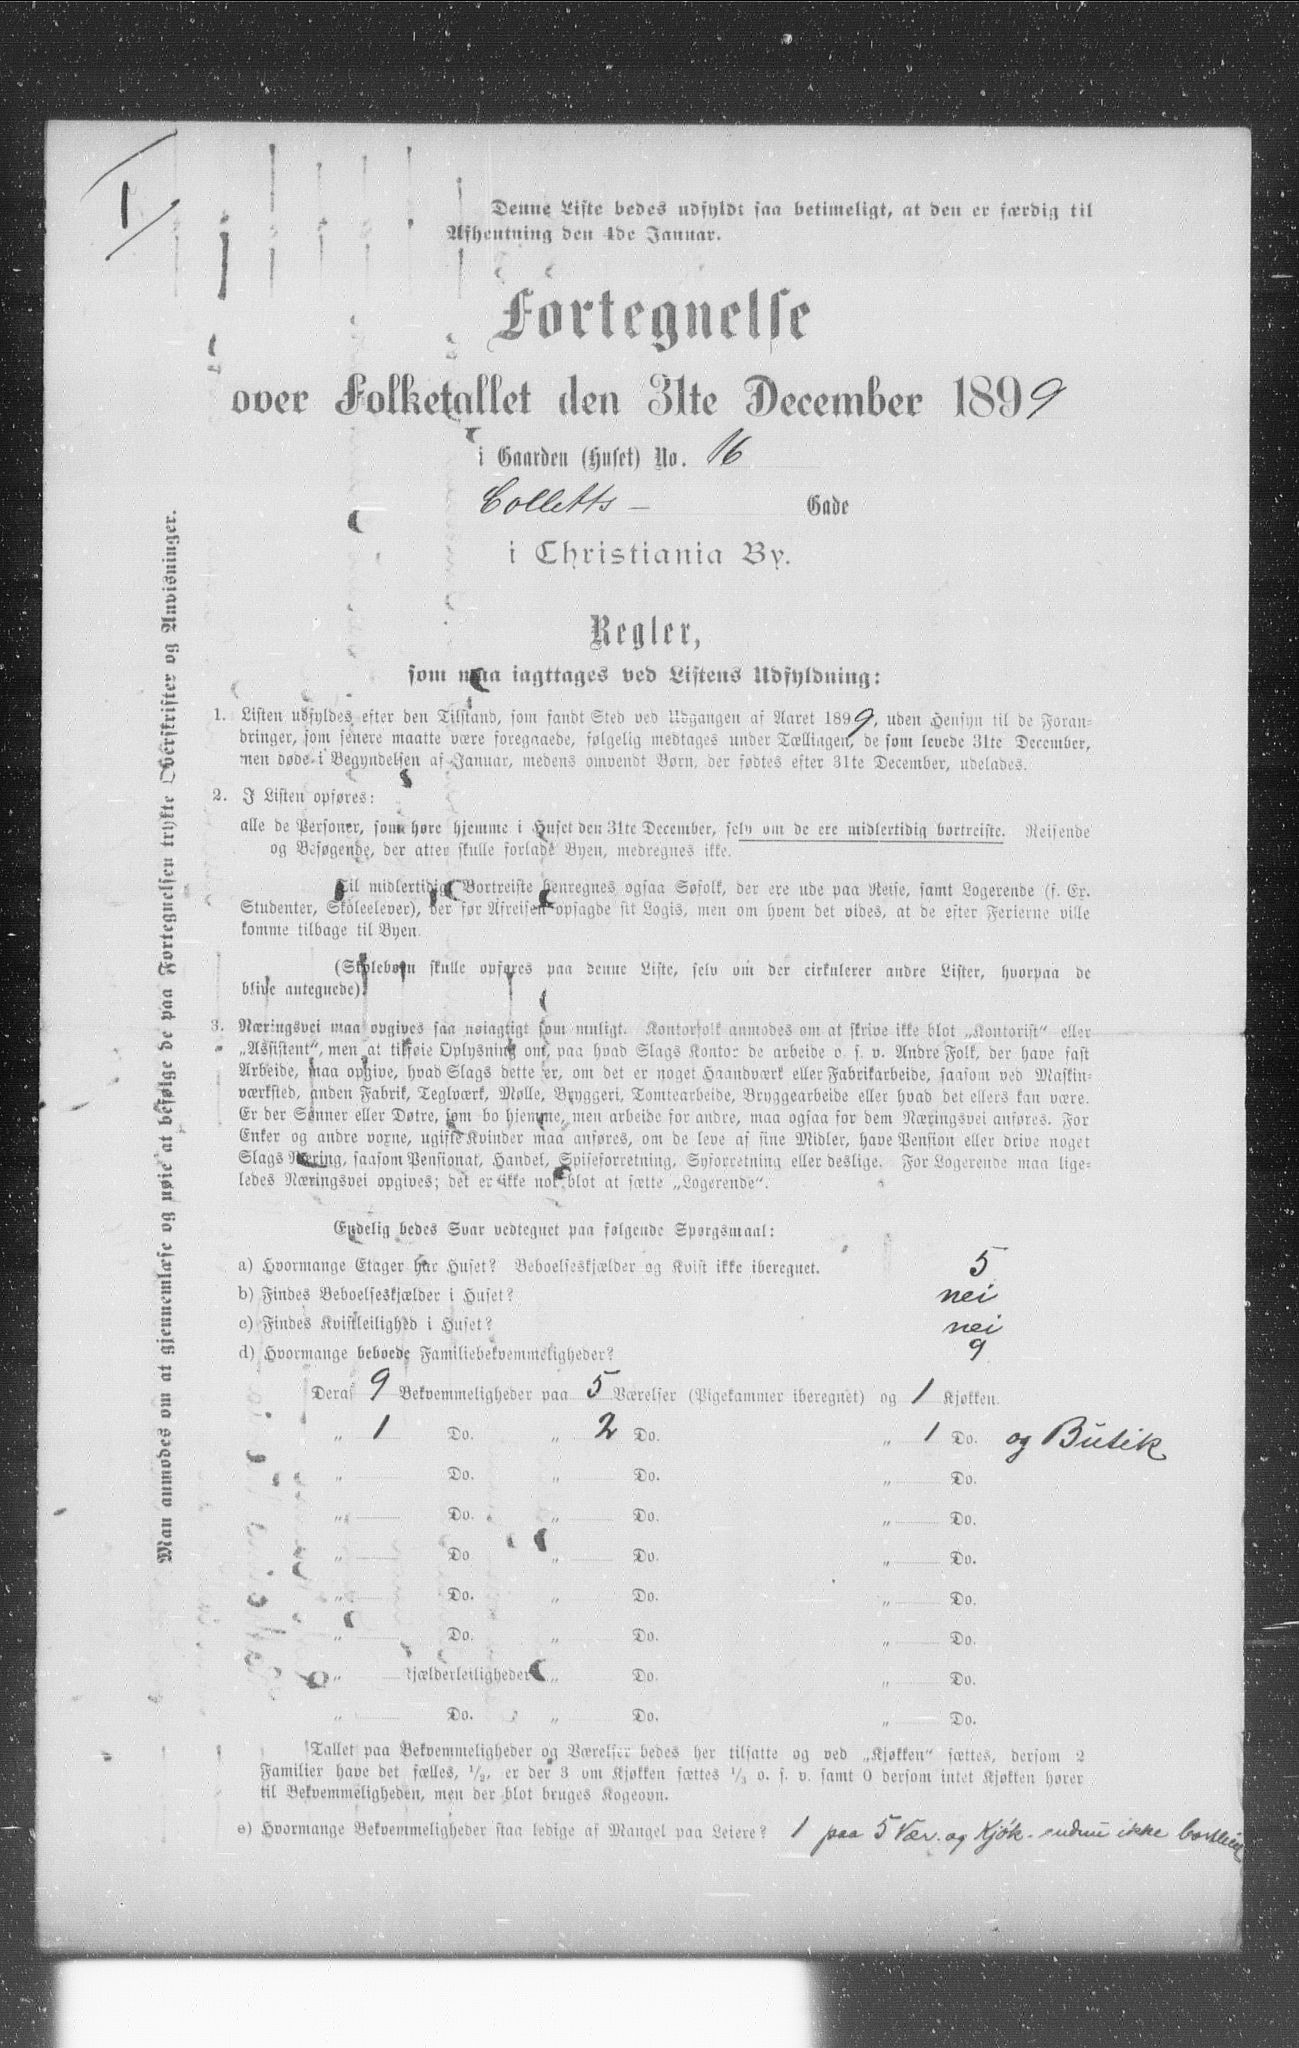 I
Denne Liste bedes udfyldt saa betimeligt, at den er færdig til
Afhentning den 4de Januar.
Fortegnelse
over Folketallet den 31te December 1899
i Gaarden (Huset) No. 16
Colletts - Gade
i Christiania By.
Regler,
som maa iagttages ved Listens Udfyldning:
1. Listen udfyldes efter den Tilstand, som fandt Sted ved Udgangen af Aaret 1899, uden Hensyn til de Foran-
dringer, som senere maatte være foregaaede, følgelig medtages under Tællingen, de som levede 31te December,
men døde i Begyndelsen af Januar, medens omvendt Børn, der fødtes efter 31te December, udelades.
2. I Listen opføres:
alle de Personer, som høre hjemme i Huset den 31te December, selv om de ere midlertidig bortreiste. Reisende
og Besøgende, der atter skulle forlade Byen, medregnes ikke.
Til midlertidig Bortreiste henregnes ogsaa Søfolk, der ere ude paa Reise, samt Logerende (f. Ex.
Studenter, Skoleelever), der før Afreisen opsagde sit Logis, men om hvem det vides, at de efter Ferierne ville
komme tilbage til Byen.
(Skolebørn skulle opføres paa denne Liste, selv om der cirkulerer andre Lister, hvorpaa de
blive antegnede).
3. Næringsvei maa opgives saa nøiagtigt som muligt. Kontorfolk anmodes om at skrive ikke blot „Kontorist" eller
„Assistent", men at tilføie Oplysning om, paa hvad Slags Kontor de arbeide o. s. v. Andre Folk, der have fast
Arbeide, maa opgive, hvad Slags dette er, om det er noget Haandværk eller Fabrikarbeide, saasom ved Maskin-
værksted, anden Fabrik, Teglværk, Mølle, Bryggeri, Tomtearbeide, Bryggearbeide eller hvad det ellers kan være.
Er der Sønner eller Døtre, som bo hjemme, men arbeide for andre, maa ogsaa for dem Næringsvei anføres. For
Enker og andre voxne, ugifte Kvinder maa anføres, om de leve af sine Midler, have Pension eller drive noget
Slags Næring, saasom Pensionat, Handel, Spiseforretning, Syforretning eller deslige. For Logerende maa lige-
ledes Næringsvei opgives; det er ikke nok blot at sætte „Logerende".
Endelig bedes Svar vedtegnet paa følgende Spørgsmaal:
a) Hvormange Etager har Huset? Beboelseskjælder og Kvist ikke iberegnet. 5
b) Findes Beboelseskjælder i Huset? nei
c) Findes Kvistleilighed i Huset? nei
d) Hvormange beboede Familiebekvemmeligheder? 9
Deraf 9 Bekvemmeligheder paa 5 Værelser (Pigekammer iberegnet) og 1 Kjøkken.
„ 1 Do. „ 2 Do. „ 1 Do. og Butik
„ Do. „ Do. „ Do.
„ Do. „ Do. „ Do.
„ Do. „ Do. „ Do.
„ Do. „ Do. „ Do.
„ Do. „ Do. „ Do.
„ kjælderleiligheder „ Do. „ Do.
„ Do. „ Do. „ Do.
Tallet paa Bekvemmeligheder og Værelser bedes her tilsatte og ved „Kjøkken" sættes, dersom 2
Familier have det fælles, 1/2, er der 3 om Kjøkken sættes 1/3 o. s. v. samt 0 dersom intet Kjøkken hører
til Bekvemmeligheden, men der blot bruges Kogeovn.
e) Hvormange Bekvemmeligheder staa ledige af Mangel paa Leiere? 1 paa 5 Vær. og Kjøk. endnu ikke
Man anmodes om at gjennemlæse og nøie at befølge de paa Fortegnelsen trykte Overskrifter og Anvisninger.